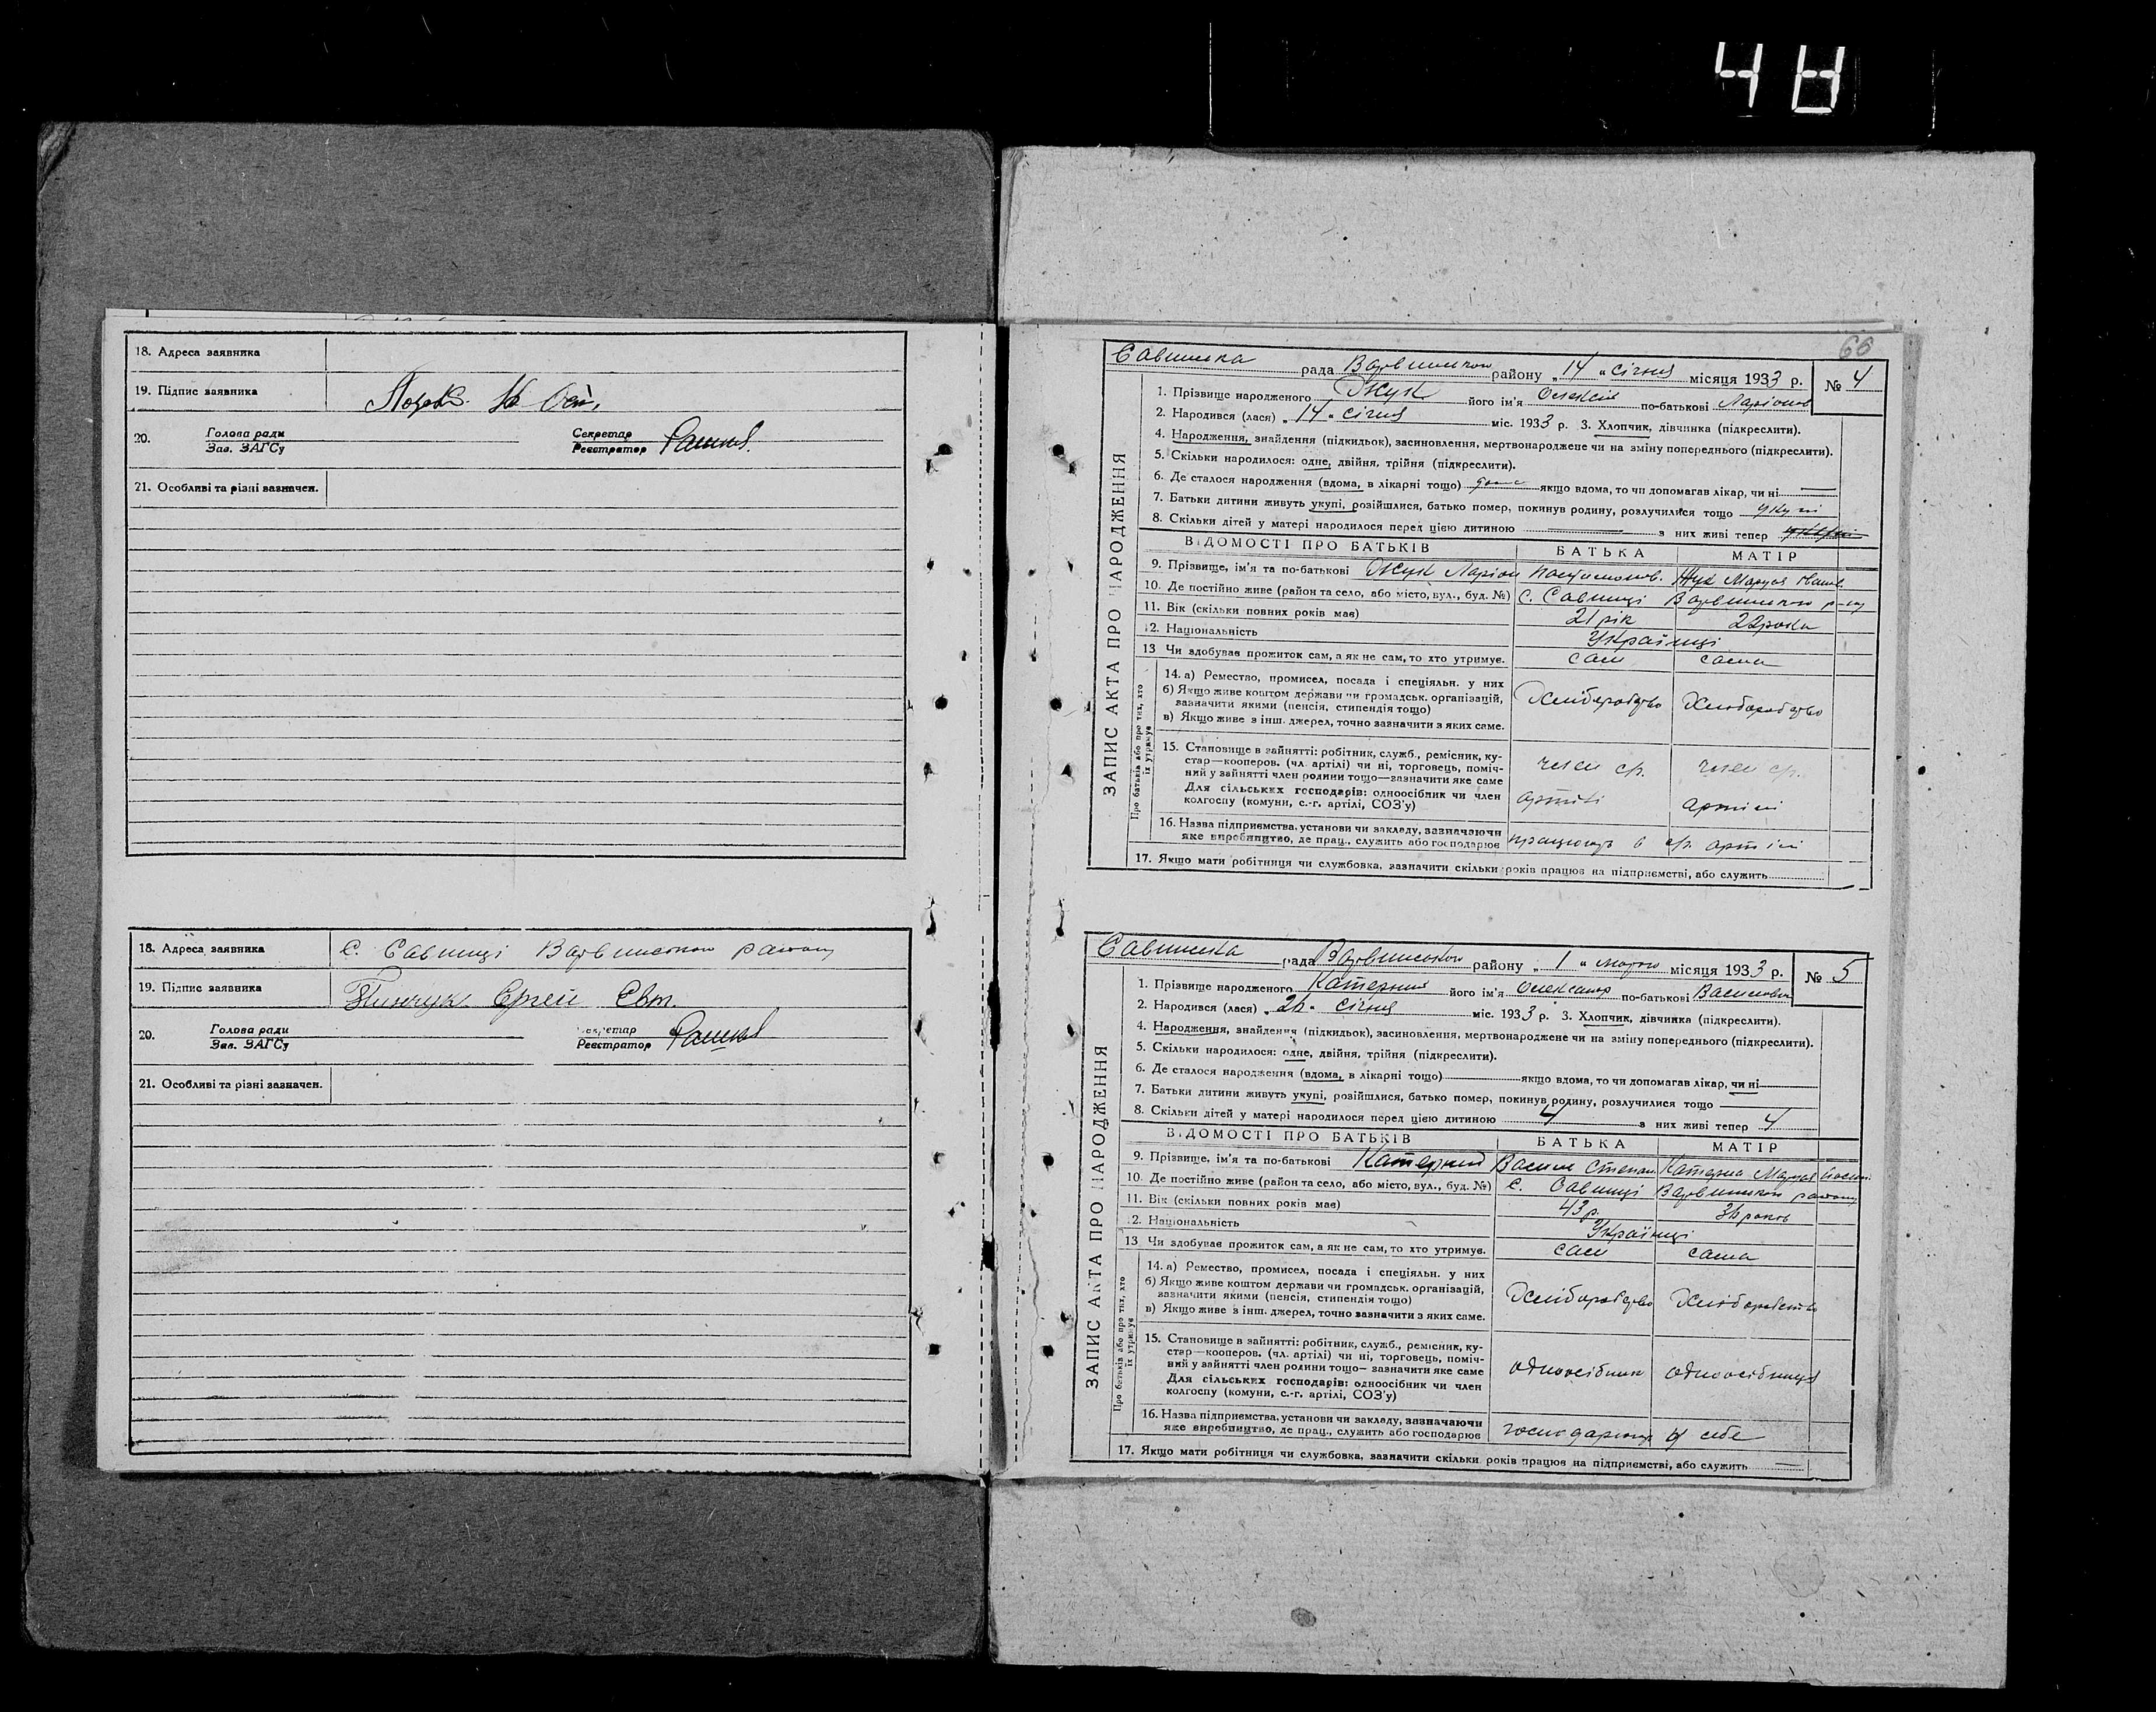 48
18. Адреса заявника
19. Підпис заявника
20. Голова ради Секретар
Зав. ЗАГСу Реєстратор
21. Особливі та різні зазначен.
18. Адреса заявника С. Савинці Варвинського району
19. Підпис заявника Пинчук Сргей Евт.
20. Голова ради Секретар
Зав. ЗАГСу Реєстратор
21. Особливі та різні зазначен.
66
ЗАПИС АКТА ПРО НАРОДЖЕННЯ
Савинська рада Варвинського району „14“ січня місяця 1933 р. № 4
1. Прізвище народженого Жук його ім'я Олексій по-батькові Ларіонов
2. Народився (лася) „14“ січня міс. 1933 р. 3. Хлопчик, дівчинка (підкреслити).
4. Народження, знайдення (підкидьок), засиновлення, мертвонароджене чи на зміну попереднього (підкреслити).
5. Скільки народилося: одне, двійня, трійня (підкреслити).
6. Де сталося народження (вдома, в лікарні тощо) якщо вдома, то чи допомагав лікар, чи ні
7. Батьки дитини живуть укупі, розійшлися, батько помер, покинув родину, розлучилися тощо укупі
8. Скільки дітей у матері народилося перед цією дитиною з них живі тепер
ВІДОМОСТІ ПРО БАТЬКІВ БАТЬКА МАТІР
9. Прізвище, ім'я та по-батькові Жук Ларіон Жук Маруся Іванів.
10. Де постійно живе (район та село, або місто, вул., буд. №) С. Савинці Варвинського р-ну
11. Вік (скільки повних років має) 21 рік 22 роки
12. Національність Українці
13 Чи здобував прожиток сам, а як не сам, то хто утримує. сам сама
Про батьків або про тих, хто їх утримує
14. а) Ремество, промисел, посада і спеціяльн. у них
б) Якщо живе коштом держави чи громадськ. організацій,
зазначити якими (пенсія, стипендія тощо) Хліборобство Хліборобство
в) Якщо живе з інш. джерел, точно зазначити з яких саме.
15. Становище в зайнятті: робітник, служб., ремісник, ку-
стар—кооперов. (чл. артілі) чи ні, торговець, поміч- член с/г. член с/г.
ний у зайнятті член родини тощо—зазначити яке саме
Для сільських господарів: одноосібник чи член
колгоспу (комуни, с.-г. артілі, СОЗ'у) артілі артілі
16. Назва підприємства, установи чи закладу, зазначаючи
яке виробництво, де прац., служить або господарює працюють в с/г. артілі
17. Якщо мати робітниця чи службовка, зазначити скільки років працює на підприємстві, або служить
ЗАПИС АКТА ПРО НАРОДЖЕННЯ
Савинська рада Варвинського району „1“ лютого місяця 1933 р. № 5
1. Прізвище народженого Катерний його ім'я Олександр по-батькові Васильович
2. Народився (лася) „26“ січня міс. 1933 р. 3. Хлопчик, дівчинка (підкреслити).
4. Народження, знайдення (підкидьок), засиновлення, мертвонароджене чи на зміну попереднього (підкреслити).
5. Скільки народилося: одне, двійня, трійня (підкреслити).
6. Де сталося народження (вдома, в лікарні тощо) якщо вдома, то чи допомагав лікар, чи ні
7. Батьки дитини живуть укупі, розійшлися, батько помер, покинув родину, розлучилися тощо
8. Скільки дітей у матері народилося перед цією дитиною 4 з них живі тепер 4
ВІДОМОСТІ ПРО БАТЬКІВ БАТЬКА МАТІР
9. Прізвище, ім'я та по-батькові Катерний Василь Степан. Катерна Маруся
10. Де постійно живе (район та село, або місто, вул., буд. №) С. Савинці Варвинського району
11. Вік (скільки повних років має) 43 р. 36 років
12. Національність Українці
13 Чи здобував прожиток сам, а як не сам, то хто утримує. сам сама
Про батьків або про тих, хто їх утримує
14. а) Ремество, промисел, посада і спеціяльн. у них
б) Якщо живе коштом держави чи громадськ. організацій,
зазначити якими (пенсія, стипендія тощо) Хліборобство Хліборобство
в) Якщо живе з інш. джерел, точно зазначити з яких саме.
15. Становище в зайнятті: робітник, служб., ремісник, ку-
стар—кооперов. (чл. артілі) чи ні, торговець, поміч-
ний у зайнятті член родини тощо—зазначити яке саме одноосібник одноосібниця
Для сільських господарів: одноосібник чи член
колгоспу (комуни, с.-г. артілі, СОЗ'у)
16. Назва підприємства, установи чи закладу, зазначаючи
яке виробництво, де прац., служить або господарює господарюють у себе
17. Якщо мати робітниця чи службовка, зазначити скільки років працює на підприємстві, або служить